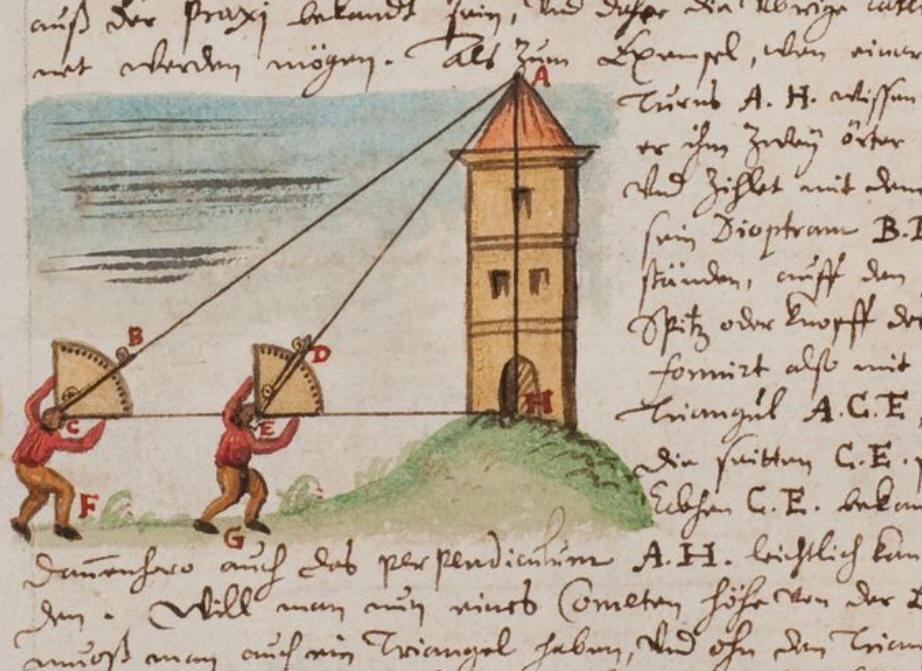 auß der Praxi bekandt sein, Vnd daher die Vbrige
net werden mögen. Als Zum Exempel, wen einer
A
Turns A. H. wissen
er ihm Zweÿ örter
Vnd Zihlet mit dem
sein Dioptram B.
ständen, auff den
B
Spitz oder Knopff der
D
formirt also mit
H
Triangul A.C.E
C
E
die seitten C.E.
F
C.E.
G
Dannenhero auch das perpendiculum A.H. leichtlich kan
den. Will man nun eines Cometen höhe von der
muoß man auch ein Triangel haben, Vnd ohn den